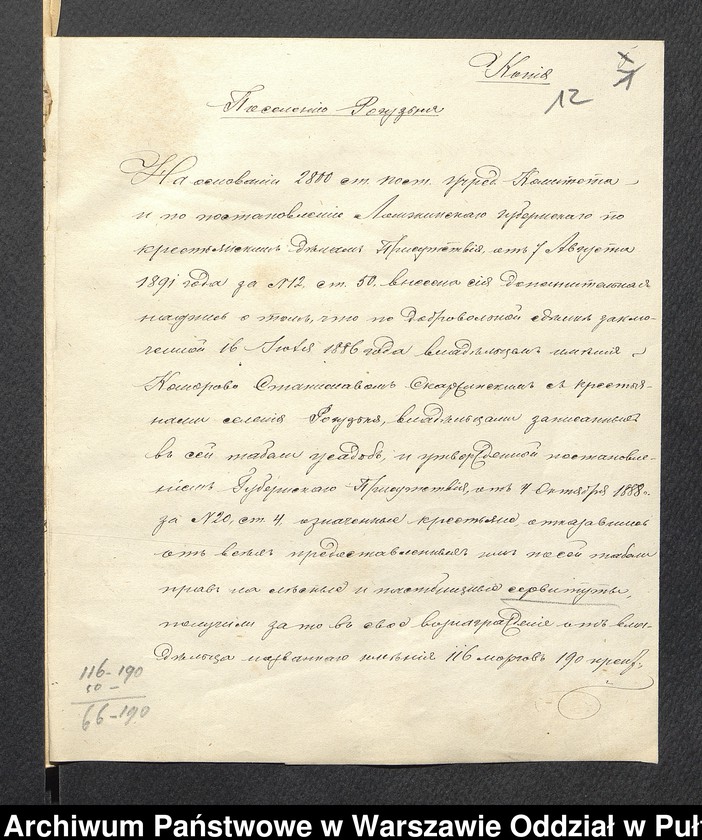 Копія
1
12
Поселенію Рогузна
На основаніи 2800 ст. пост. Учред. Комитета
и по постановленію Ломжинскаго губернскаго по
крестьянскимъ дѣламъ Присутствія, отъ 7 Августа
1891 года за №12, ст. 50, внесена сія дополнительная
надпись о томъ, что по добровольной сдѣлкѣ заклю-
ченной 16 Іюля 1886 года владѣльцемъ имѣнія
Коморово Станиславомъ Скаржинскимъ съ крестья-
нами селенія владѣльцами записанныхъ
въ сей табели усадебъ, и утвержденной постановле-
ніемъ Губернскаго Присутствія, отъ 4 Октября 1888 г.
за №20, ст. 4, означенные крестьяне, отказавшись
отъ всѣхъ предоставленныхъ имъ по сей табели
правъ на лѣсные и пастбищные сервитуты,
получили за то въ свое вознагражденіе отъ вла-
дѣльца названнаго имѣнія 116 морговъ 190 прент.
116-190
50 -
66-190
Archiwum Państwowe w Warszawie Oddział w Puł